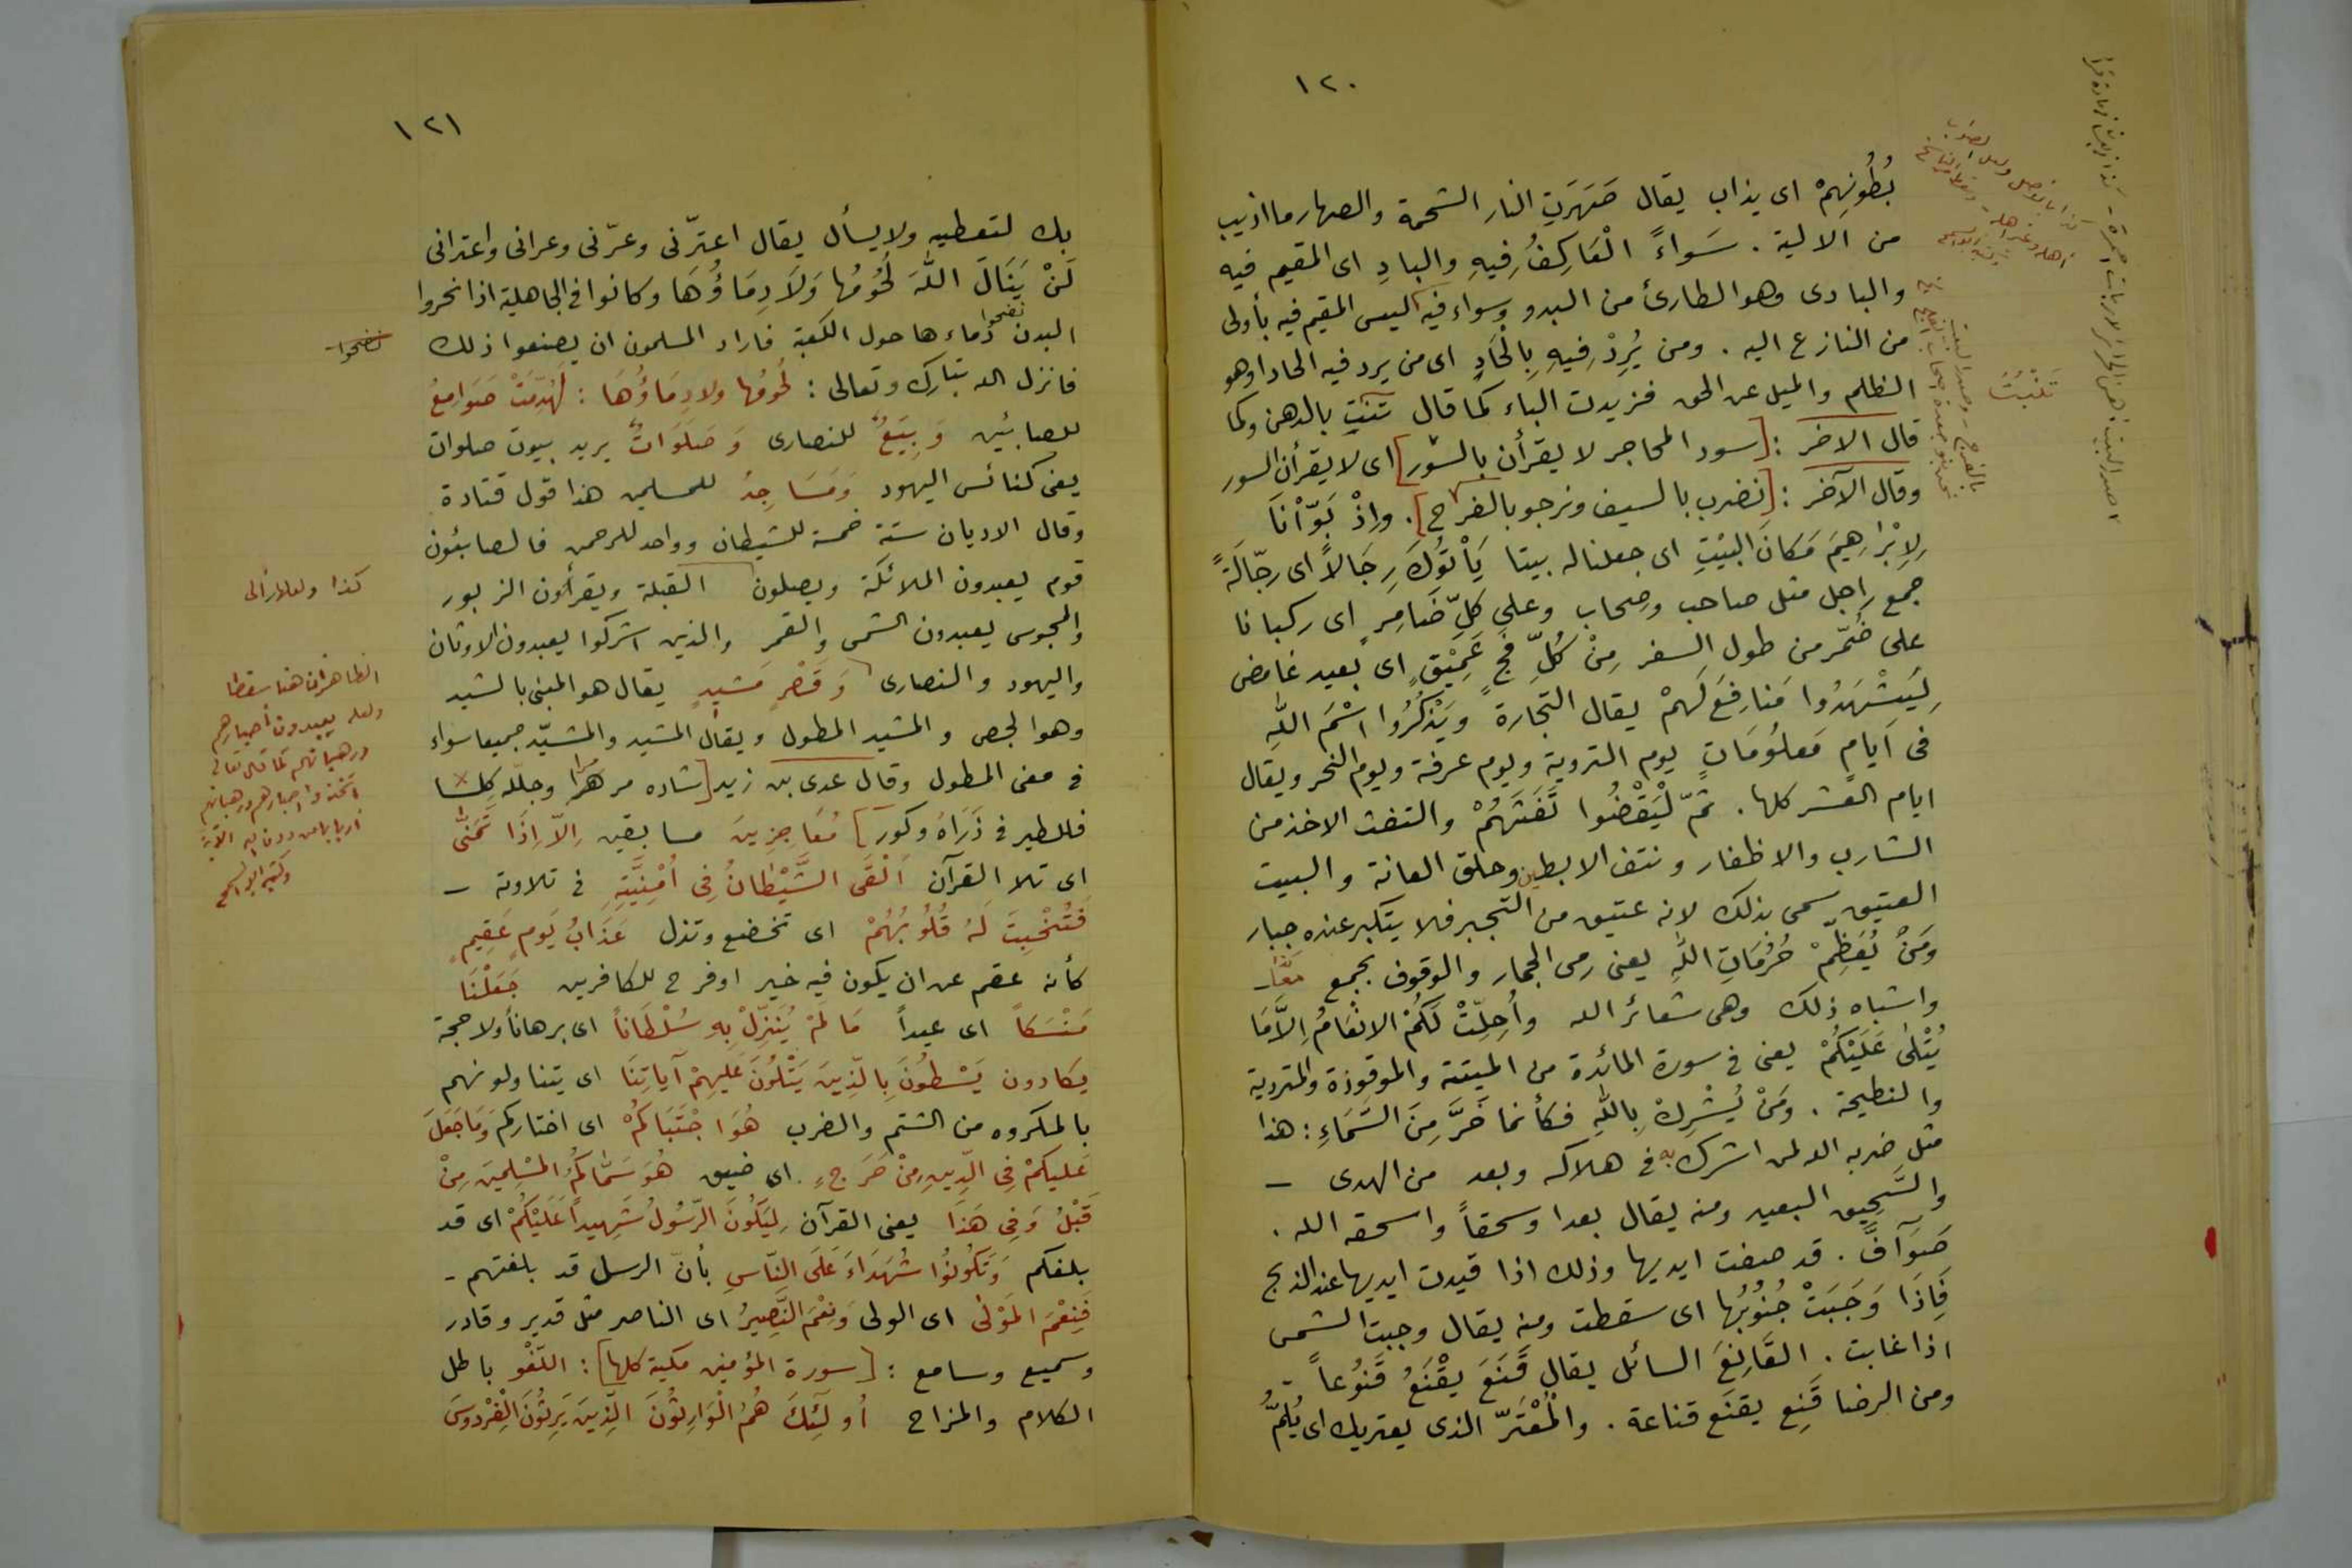 ١٢٠
بُطُونِهِمْ اى يذاب يقال صَهَرَتِ النار الشحمة والصهار ما اذيب
من الالية . سَوَاءً الْعَاكِفُ فِيهِ والبادِ اى المقيم فيه
والبادى وهو الطارئ من البدو وسواء فيه اليس المقيم فيه بأولى
من النازع اليه . ومن يُرِدْ فِيهِ بِالْحَادٍ اى من يرد فيه الحادا وهو
الظلم والميل عن الحق فزيدت الباء كما قال تنبت بالدهن وكما
قال الاخر : [سود المحاجر لا يقرأن بالسّور] اى لا يقرأن السور
وقال الآخر : [نضرب بالسيف ونرجو بالفرج] . وإذْ بَوّأنَا
لِإبْرَاهِيمَ مَكَانَ البَيْتِ اى جعلنا له بيتا يَأْتُوكَ رِجَالاً اى رجّالَةً
جمع راجل مثل صاحب وصحاب وعلى كلِّ ضَامِرٍ اى ركبانا
على ضُمّر من طول السفر مِنْ كُلِّ فَجٍّ عَمِيْقٍ اى بعيد غامض
لِيَشْهَدُوا مَنافِعَ لَهمْ يقال التجارة ويَذْكُرُوا اسْمَ اللهِ
فى اَيامٍ مَعلُومَاتٍ يوم التروية ويوم عرفة ويوم النحر ويقال
ايام العشر كلها . ثمّ لْيَقْضُوا تَفَثَهُمْ والتفث الاخذ من
الشارب والاظفار ونتف الابطين وحلق العانة والبيت
العتيق سمى بذلك لانه عتيق من التجبر فلا يتكبر عنده جبار
ومَنْ يُعَظِّمْ حُرُمَاتِ اللهِ يعنى رمى الجمار والوقوف بجمع
واشباه ذلك وهى شعائر الله وأُحِلّتْ لَكُمْ الانْعَامُ اِلاَّمَا
يُتْلىٰ عَلَيْكُمْ يعنى فى سورة المائدة من الميتة والموقوذة والمتردية
والنطيحة . ومَنْ يُشْرِكْ بِاللهِ فكأنما خَرَّ مِنَ السَّمَاءِ : هذا
مثل ضربه الله لمن اشرك به فى هلاكه وبعد من الهدى –
والسَّحِيق البعيد ومنه يقال بعدا وسحقاً واسحقه الله .
صَوَآفَّ . قد صفت ايديها وذلك اذا قيدت ايديها عند الذبح
فَإِذَا وَجَبَتْ جُنُوبُها اى سقطت ومنه يقال وجبت الشمس
اذا غابت . القَانِعَ السائل يقال قَنَعَ يقْنَعُ قَنُوعاً
ومن الرضا قَنِع يقنَع قناعة . والمُعْتَرّ الذى يعتريك اى يُلِمّ
تَنْبُتُ
١٢١
بك لتعطيه ولا يسأل يقال اعترّنى وعرّنى وعرانى واعترانى
لَنْ يَنَالَ اللّهَ لُحُومُها وَلَا دِمَاؤُهَا وكانوا فى الجاهلية اذا نحروا
البدن نضحوا دماءها حول الكعبة فاراد المسلمون ان يصنعوا ذلك
فانزل الله تبارك وتعالى : لُحُومُها ولا دِمَاؤُهَا : لَهُدِّمَتْ صَوَامِعُ
للصابئين وَبِيَعٌ للنصارى وَصَلَوَاتٌ يريد بيوت صلوات
يعنى كنائس اليهود وَمَسَاجِدُ للمسلمين هذا قول قتادة
وقال الاديان ستة خمسة للشيطان وواحد للرحمن فالصابئون
قوم يعبدون الملائكة ويصلون القبلة ويقرأون الزبور
والمجوس يعبدون الشمس والقمر والذين اشركوا يعبدون الاوثان
واليهود والنصارى وَقَصْرٍ مَشيدٍ يقال هو المبنى بالشيد
وهو الجص والمشيد المطول ويقال المشيد والمشيّد جميعا سواء
فى معنى المطول وقال عدى بن زيد [شاده مرمرا وجلّله كِلسا
فللطير فى ذَرَاهُ وكور] مُعَاجِزِينَ مسابقين اِلاّ اِذَا تَمَنّى
اى تلا القرآن اَلْقَى الشَّيْطَانُ فِى اُمْنِيَّتِهِ فى تلاوته –
فَتُخْبِتَ لَهُ قُلُوبُهُمْ اى تخضع وتذل عَذَابُ يَومٍ عَقِيمٍ
كأنه عقم عن ان يكون فيه خير او فرح للكافرين جَعَلْنَا
مَنْسَكاً اى عيداً مَا لَمْ يُنَزِّلْ بِهِ سُلْطَاناً اى برهاناً ولا حجة
يكادون يَسْطُونَ بِالّذِينَ يَتْلُونَ عَلَيهِمْ آيَاتِنَا اى يتناولونهم
بالمكروه من الشتم والضرب هُوَ اجْتَبَاكُمْ اى اختاركم وَمَا جَعَلَ
عَليكمْ فِى الدِّينِ مِنْ حَرَجٍ . اى ضيق هُوَ سَمَّاكُمُ المُسْلِمِينَ مِنْ
قَبْلُ وَفِى هَذَا يعنى القرآن لِيَكُونَ الرّسُولُ شَهِيداً عَلَيْكُمْ اى قد
بلغكم وَتَكُونُوا شُهَدَاءَ عَلَى النَّاسِ بأنّ الرسل قد بلغتهم –
فَنِعْمَ المَوْلىٰ اى الولى وَنِعْمَ النَّصِيرُ اى الناصر مثل قدير وقادر
وسميع وسامع : [سورة المؤمنين مكية كلها] : اللّغْو باطل
الكلام والمزاح اُولَئِكَ هُمُ الْوَارِثُونَ الّذِينَ يَرِثُونَ الْفِرْدَوسَ
نضحوا
كذا ولعلها الى
الظاهر ان هنا سقطا
ولعله يعبدون أحبارهم
ورهبانهم كما قال تعالى
اتخذوا احبارهم ورهبانهم
اربابا من دون الله الآية